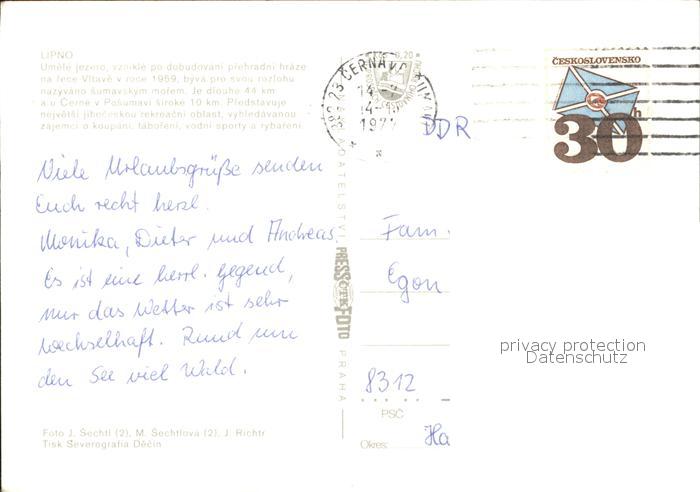 LIPNO
Umělé jezero, vzniklé po dobudování přehradní hráze
na řece Vltavě v roce 1959, bývá pro svou rozlohu
nazýváno šumavským mořem. Je dlouhé 44 km
a u Černé v Pošumaví široké 10 km. Představuje
největší jihočeskou rekreační oblast, vyhledávanou
zájemci o koupání, táboření, vodní sporty a rybaření.
Viele Urlaubsgrüße senden
Euch recht herzl.
Monika, Dieter und Andreas.
Es ist eine herrl. Gegend,
nur das Wetter ist sehr
wechselhaft. Rund um
den See viel Wald.
Foto J. Šechtl (2), M. Šechtlová (2), J. Richtr
Tisk Severografia Děčín
PRESSFOTO
PRAHA
ČERNÁ V
1977
ČESKOSLOVENSKO
30h
DDR
Fam.
Egon
8312
PSČ
Okres: Ha
privacy protection
Datenschutz